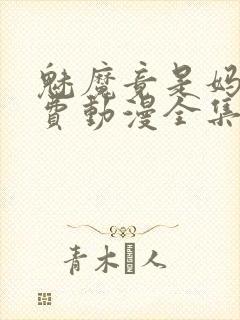 魅魔竟是妈
费動漫全集
青木 人